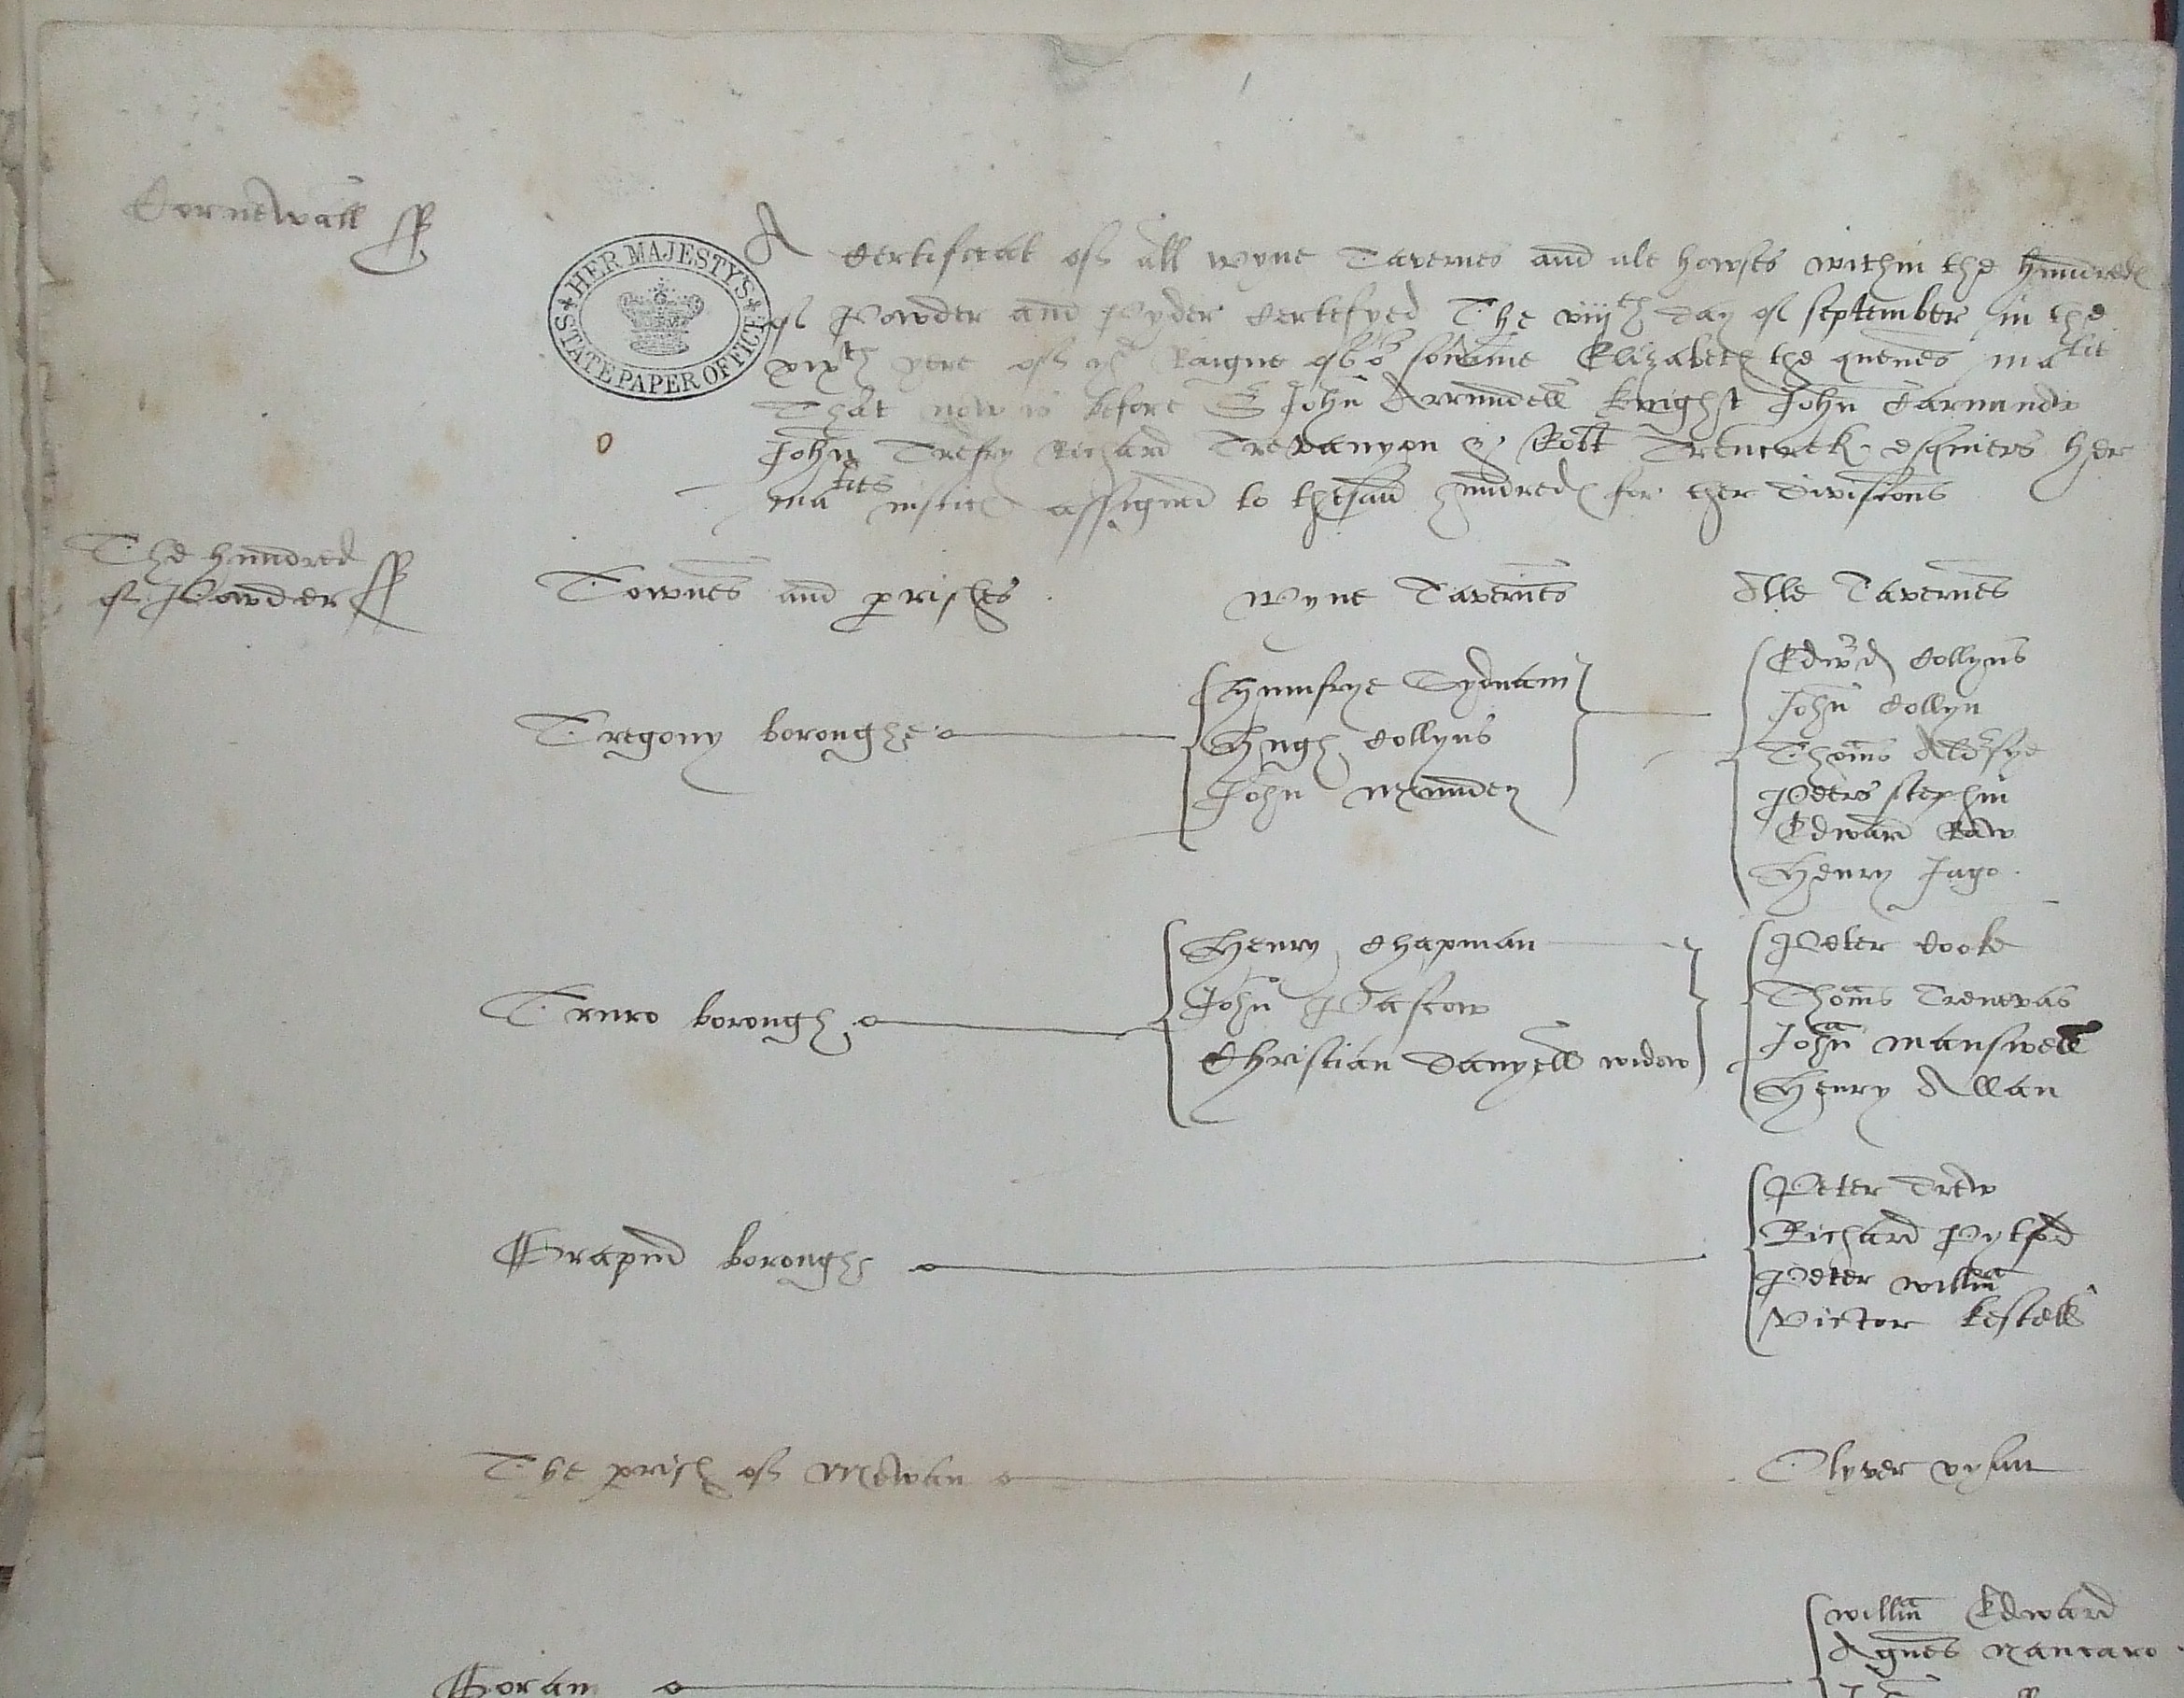 Cornewall
HER MAJESTY'S STATE PAPER OFFICE
A certificat off all wyne Tavernes and ale howses within the hundreds
of Powder and Pyder certefyed The viijth day of september in the
xixth yere off yr Raigne of or soveraine Elizabeth the quenes matie
That now is before Sr John Arrundell knighst John Carmindo
John Trefry Richard Trevanyon & Robt Trencrek esquiers Her
maties justics assigned to thesaid hundreds for ther Divisions
The hundred
of Powder
Townes and prishes
Wyne Tavernes
Alle Tavernes
Tregony boroughe
Humfrye Sydnam
Hugh Collyns
John Munden
Edwrd Collyns
John Collyn
Thoms
Peers Stephin
Edward Raw
Henry Jago
Truro borough
Henry Chapman
John Pascow
Christian Danyell widow
Peter Cooke
Thoms Trenewas
John Manswell
Henry Allan
Grapmd boroughe
Peter Drew
Richard Pytford
Peter Willm
Victor Kestell
The prish off Mewan
Olyver Vysan
Goran
Willm Edward
Agnes Nancaro